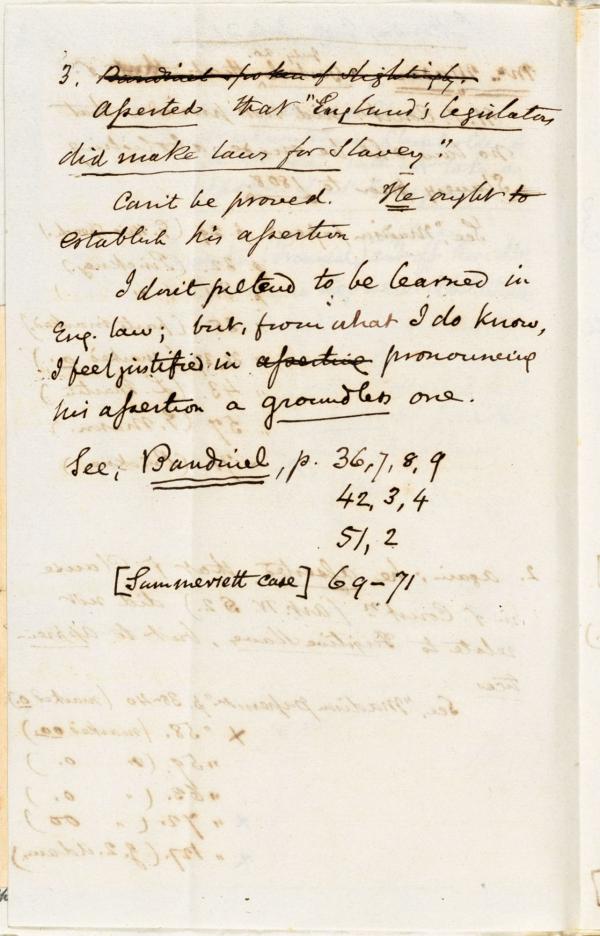 3. Bandinel spoken of slightingly.
Asserted that "England's legislators
did make laws for Slavery."
Can't be proved. He ought to
establish his assertion
I don't pretend to be learned in
Eng. law; but, from what I do know,
I feel justified in asserting pronouncing
his assertion a groundless one.
See, Bandinel, p. 36, 7, 8, 9
42, 3, 4
51, 2
[Summersett case] 69-71